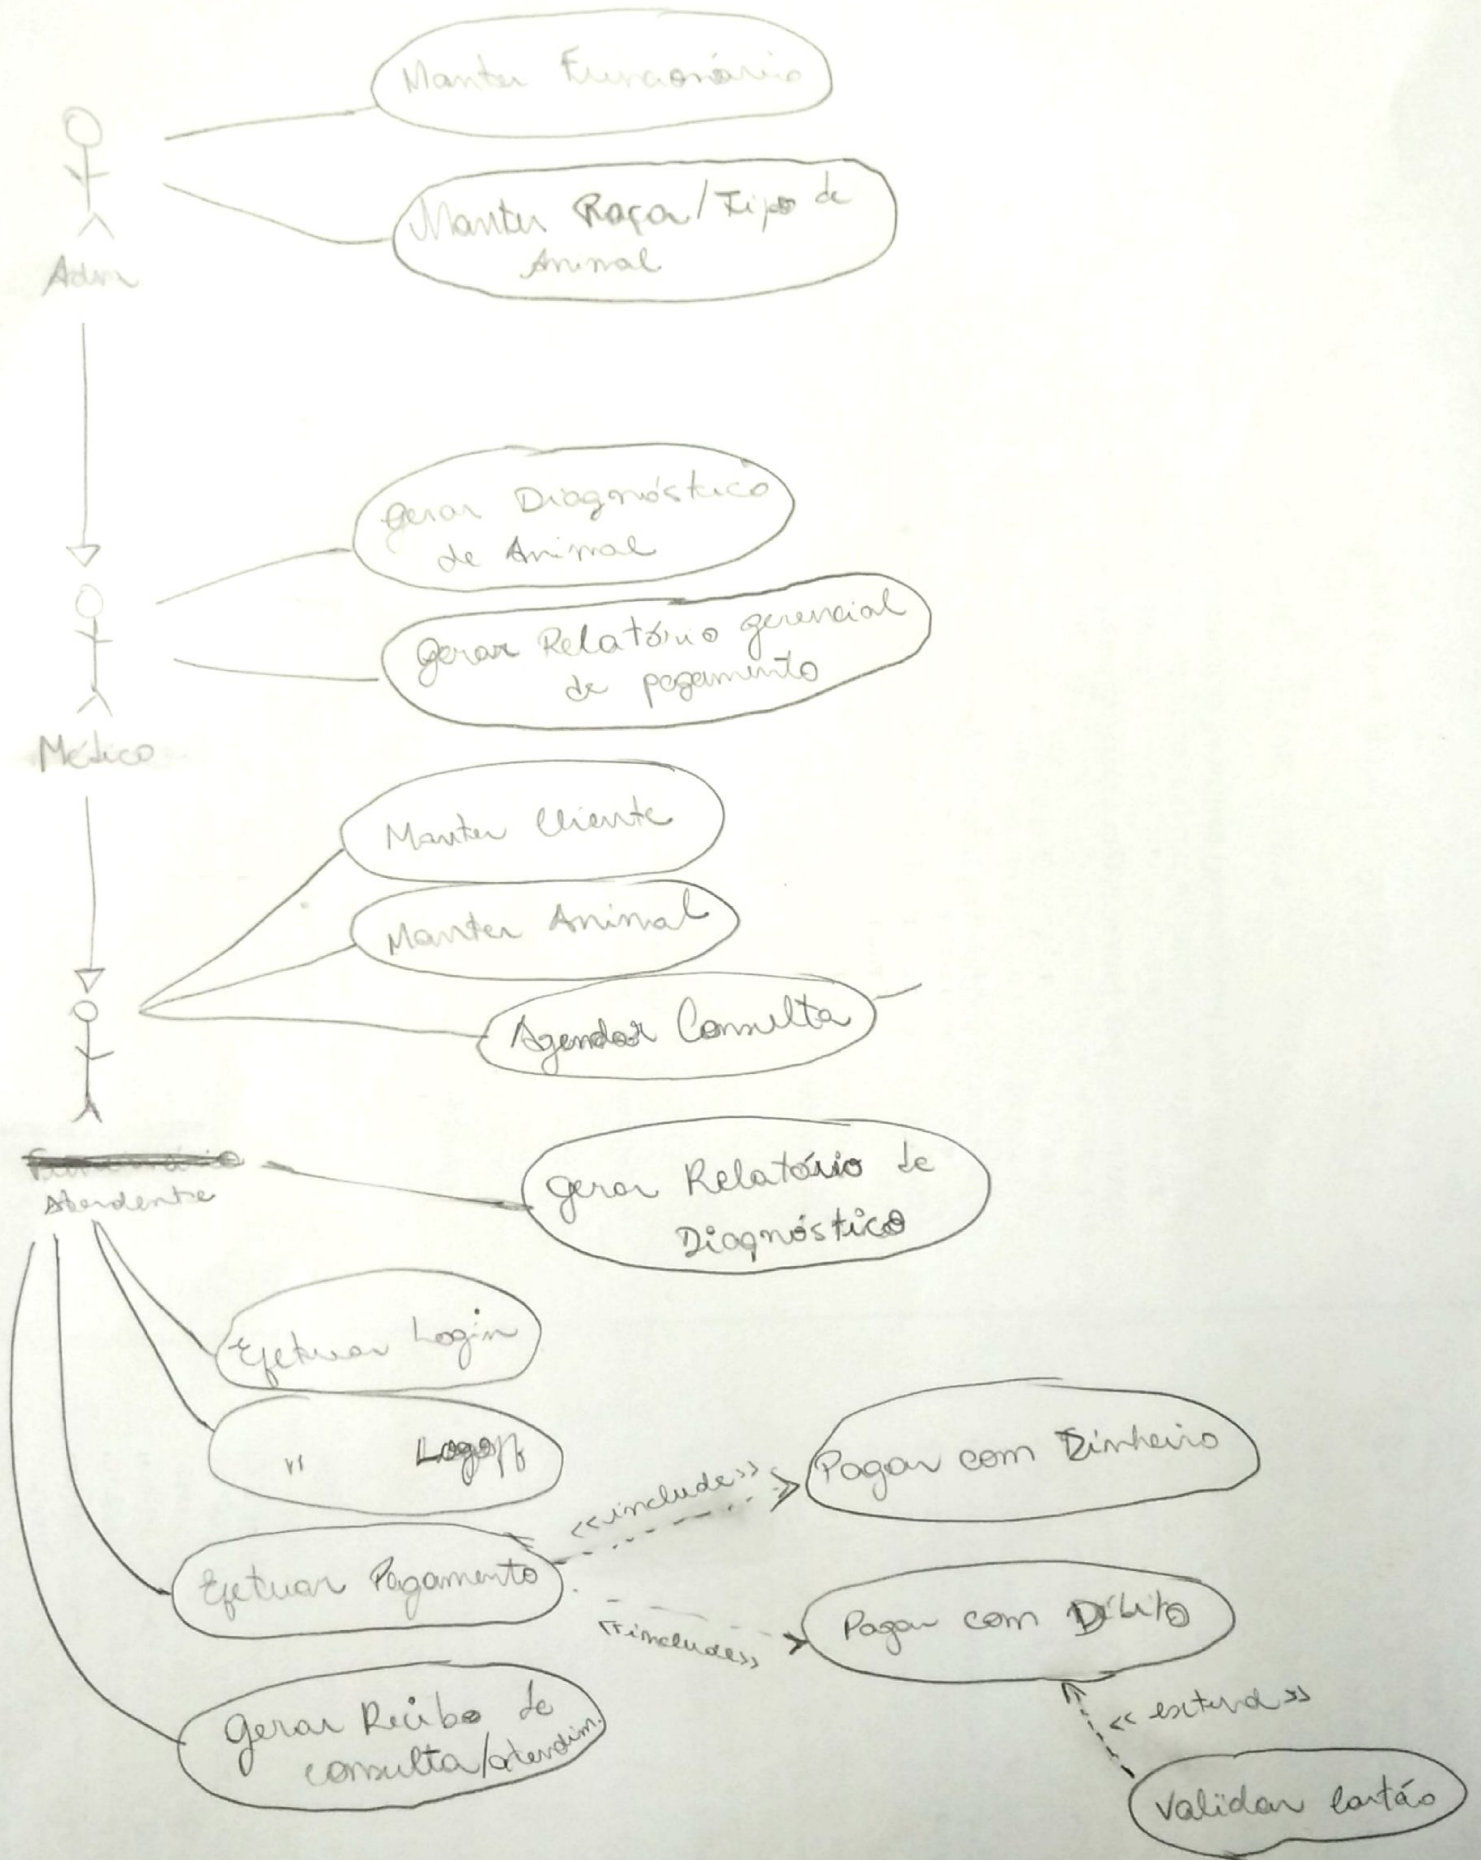 Manter Funcionário
Manter Raça/Tipo de
Animal
Adm
Gerar Diagnóstico
de Animal
Gerar Relatório gerencial
de pagamento
Médico
Manter Cliente
Manter Animal
Agendar Consulta
Atendente
Gerar Relatório de
Diagnóstico
Efetuar Login
" Logoff
Efetuar Pagamento
<<include>>
Pagar com Dinheiro
<<include>>
Pagar com Débito
<<extend>>
Gerar Recibo de
consulta/atendim.
Validar Cartão